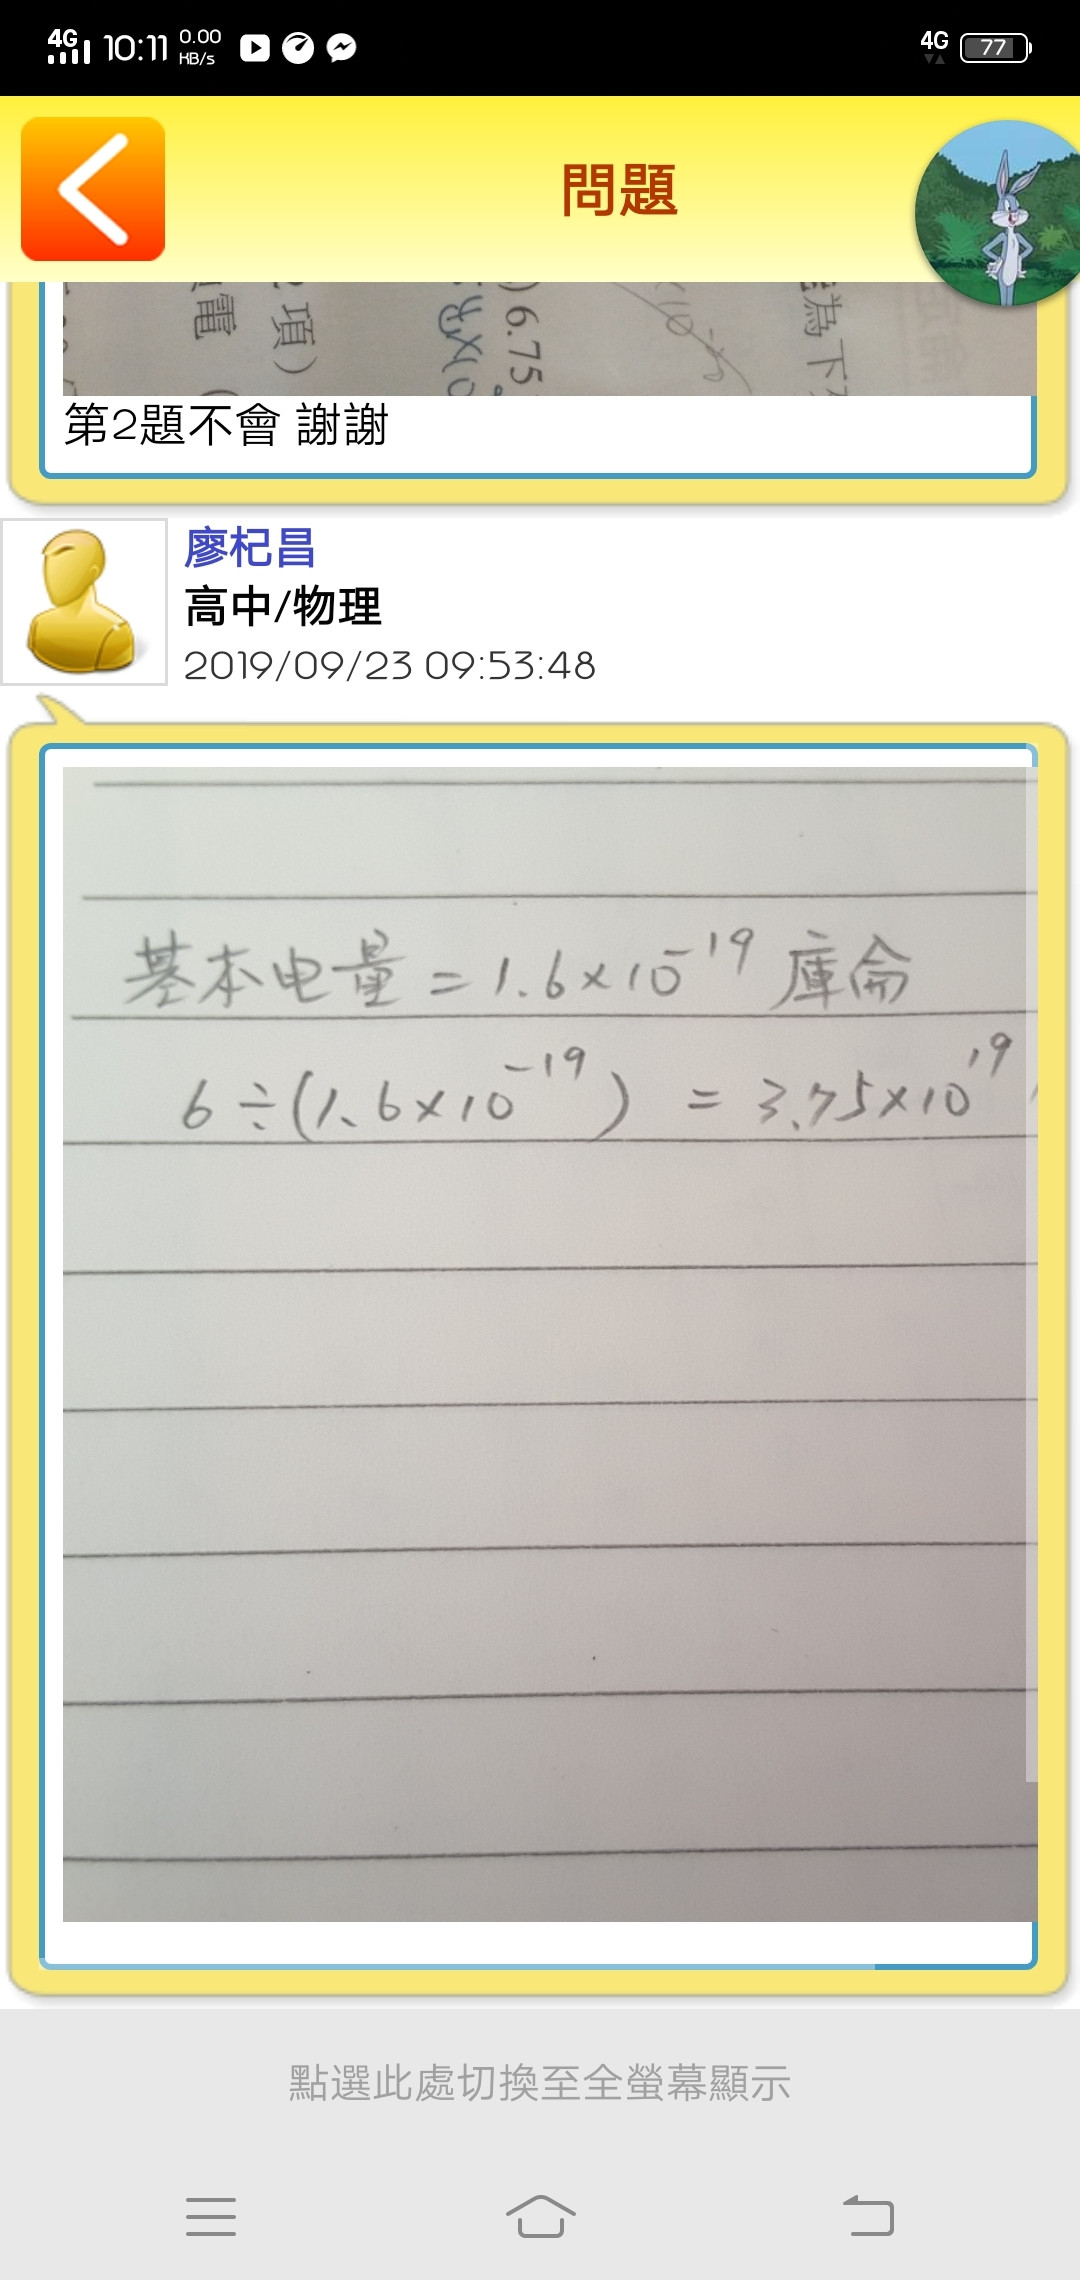 4G 10:11 0.00 KB/s 4G 77
問題
電
項）
6.75
為下
第2題不會 謝謝
廖杞昌
高中/物理
2019/09/23 09:53:48
基本电量=1.6×10⁻¹⁹庫侖
6÷(1.6×10⁻¹⁹) = 3.75×10¹⁹
點選此處切換至全螢幕顯示